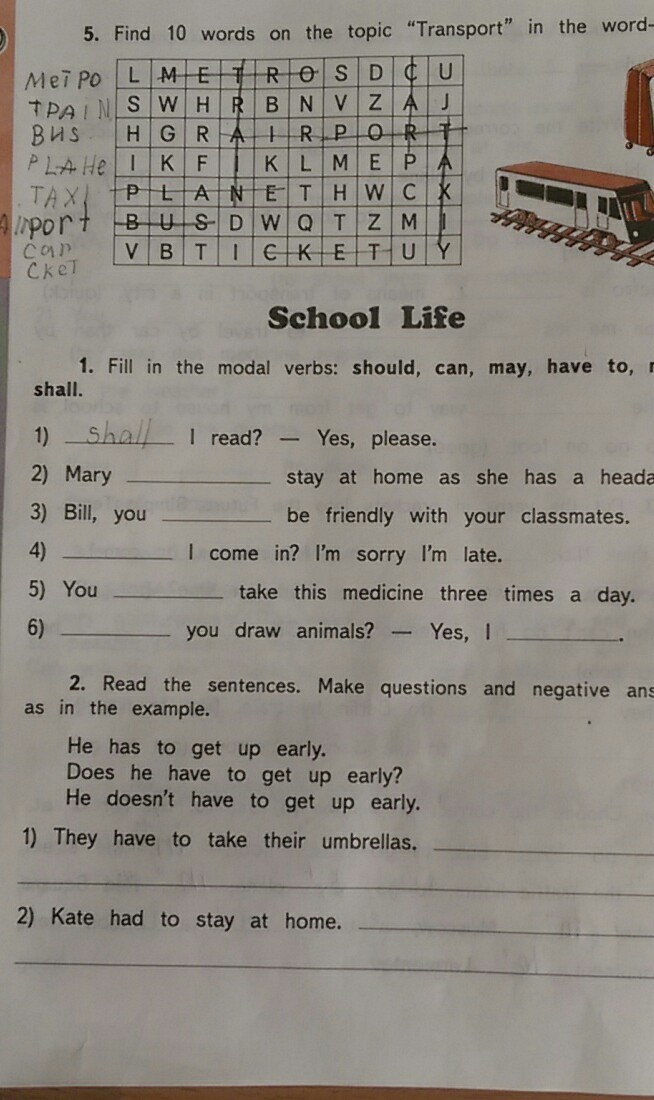 5. Find 10 words on the topic “Transport” in the word-
МеТРО
L M E T R O S D C U
TPAIN
S W H R B N V Z A J
BUS
H G R A I R P O R T
PLAHe
I K F I K L M E P A
TAXI
P L A N E T H W C X
AIrport
B U S D W Q T Z M I
car
V B T I C K E T U Y
CKeT
School Life
1. Fill in the modal verbs: should, can, may, have to,
shall.
1) shall I read? — Yes, please.
2) Mary ____________ stay at home as she has a heada
3) Bill, you __________ be friendly with your classmates.
4) __________ I come in? I'm sorry I'm late.
5) You __________ take this medicine three times a day.
6) __________ you draw animals? — Yes, I __________.
2. Read the sentences. Make questions and negative ans
as in the example.
He has to get up early.
Does he have to get up early?
He doesn't have to get up early.
1) They have to take their umbrellas. ____________________
2) Kate had to stay at home. ____________________